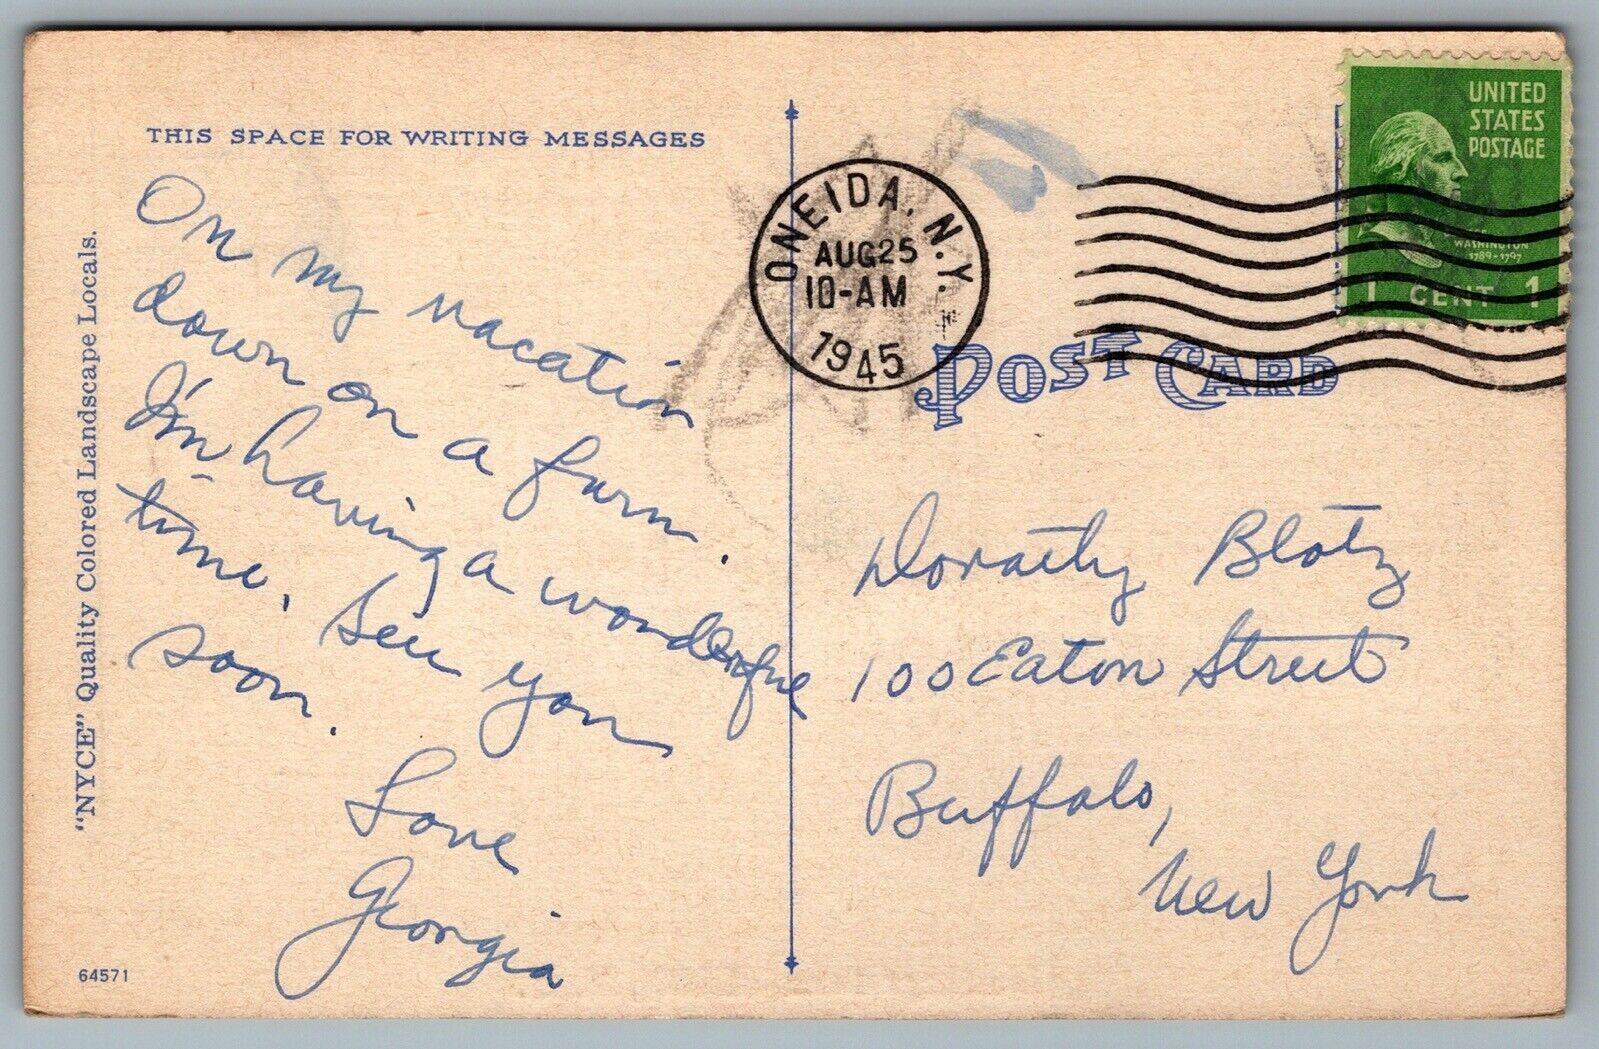 THIS SPACE FOR WRITING MESSAGES
On my vacation
down on a farm.
I'm having a wonderful
time. See you
soon.
Love
Georgia
"NYCE" Quality Colored Landscape Locals.
64571
ONEIDA, N.Y.
AUG 25
10-AM
1945
UNITED
STATES
POSTAGE
WASHINGTON
1789-1797
1 CENT 1
POST CARD
Dorothy Blotz
100 Eaton Street
Buffalo,
New York